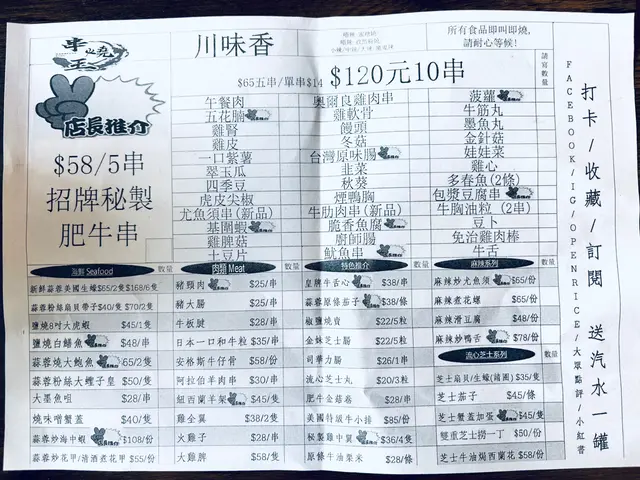 川味香
所有食品即叫即燒,
請耐心等候!
店長推介
$58/5串
招牌秘製
肥牛串
$65五串/單串$14 $120元10串
請寫數量
午餐肉
五花腩
雞腎
雞皮
一口紫薯
翠玉瓜
四季豆
虎皮尖椒
尤魚須串(新品)
基圍蝦
雞脾菇
土豆片
奧爾良雞肉串
雞軟骨
饅頭
冬菇
台灣原味腸
韭菜
秋葵
煙鴨胸
牛肋肉串(新品)
脆香魚腐
廚師腸
魷魚串
菠蘿
牛筋丸
墨魚丸
金針菇
娃娃菜
雞心
多春魚(2條)
包漿豆腐串
牛胸油粒 (2串)
豆卜
免治雞肉棒
牛舌
海鮮 Seafood 數量
新鮮蒜蓉美國生蠔$65/2隻$168/6隻
蒜蓉粉絲扇貝帶子$40/隻 $70/2隻
鹽燒8吋大虎蝦 $45/1隻
鹽燒白鱔魚 $48/串
蒜蓉燒大鮑魚 $65/2隻
蒜蓉粉絲大蟶子皇 $50/隻
大墨魚咀 $28/串
燒味噌蟹蓋 $40/隻
蒜蓉炒海中蝦 $108/份
蒜蓉炒花甲/清酒煮花甲 $55/份
肉類 Meat 數量
豬頸肉 $25/串
豬大腸 $25/串
牛板腱 $28/串
日本一口和牛粒 $35/串
安格斯牛仔骨 $58/份
阿拉伯羊肉串 $30/串
紐西蘭羊架 $45/隻
雞全翼 $38/2隻
火雞子 $28/串
大雞脾 $58/隻
特色推介 數量
皇牌牛舌心 $38/串
蒜蓉原條茄子 $38/條
椒鹽燒賣 $22/5粒
金妹芝士腸 $22/5粒
司華力腸 $26/1串
流心芝士丸 $20/3粒
肥牛金菇卷 $28/串
美國特級牛小排 $85/份
秘製雞中翼 $36/4隻
原條牛油粟米 $28/條
麻辣系列 數量
麻辣炒尤魚須 $65/份
麻辣煮花螺 $65/份
麻辣滑豆腐 $48/份
麻辣炒鴨舌 $78/份
流心芝士系列 數量
芝士扇貝/生蠔(請圈)$35/隻
芝士茄子 $45/條
芝士蟹蓋加蛋 $45/隻
雙重芝士撈一丁 $50/份
芝士牛油焗西蘭花 $58/份
打卡/收藏/訂閱 送汽水一罐
FACEBOOK/IG/OPENRICE/大眾點評/小紅書